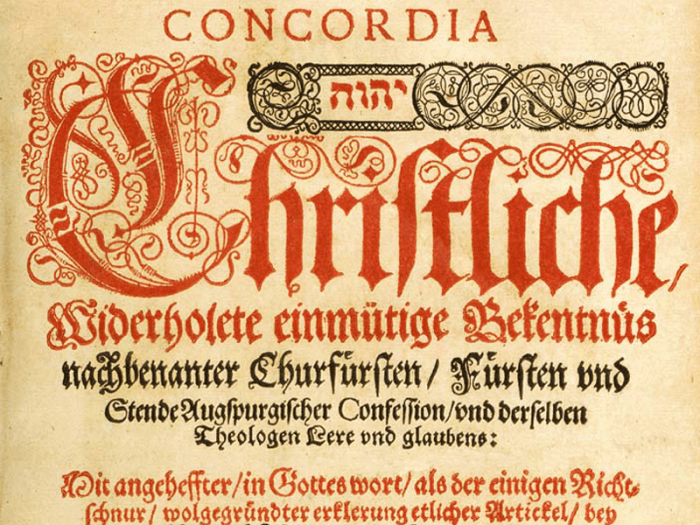 CONCORDIA
יהוה
Christliche/
Widerholete einmütige Bekentnüs
nachbenanter Churfürsten/ Fürsten vnd
Stende Augspurgischer Confession/vnd derselben
Theologen Lere vnd glaubens:
Mit angeheffter/in Gottes wort/als der einigen Richt-
schnur/ wolgegründter erklerung etlicher Artickel/ bey